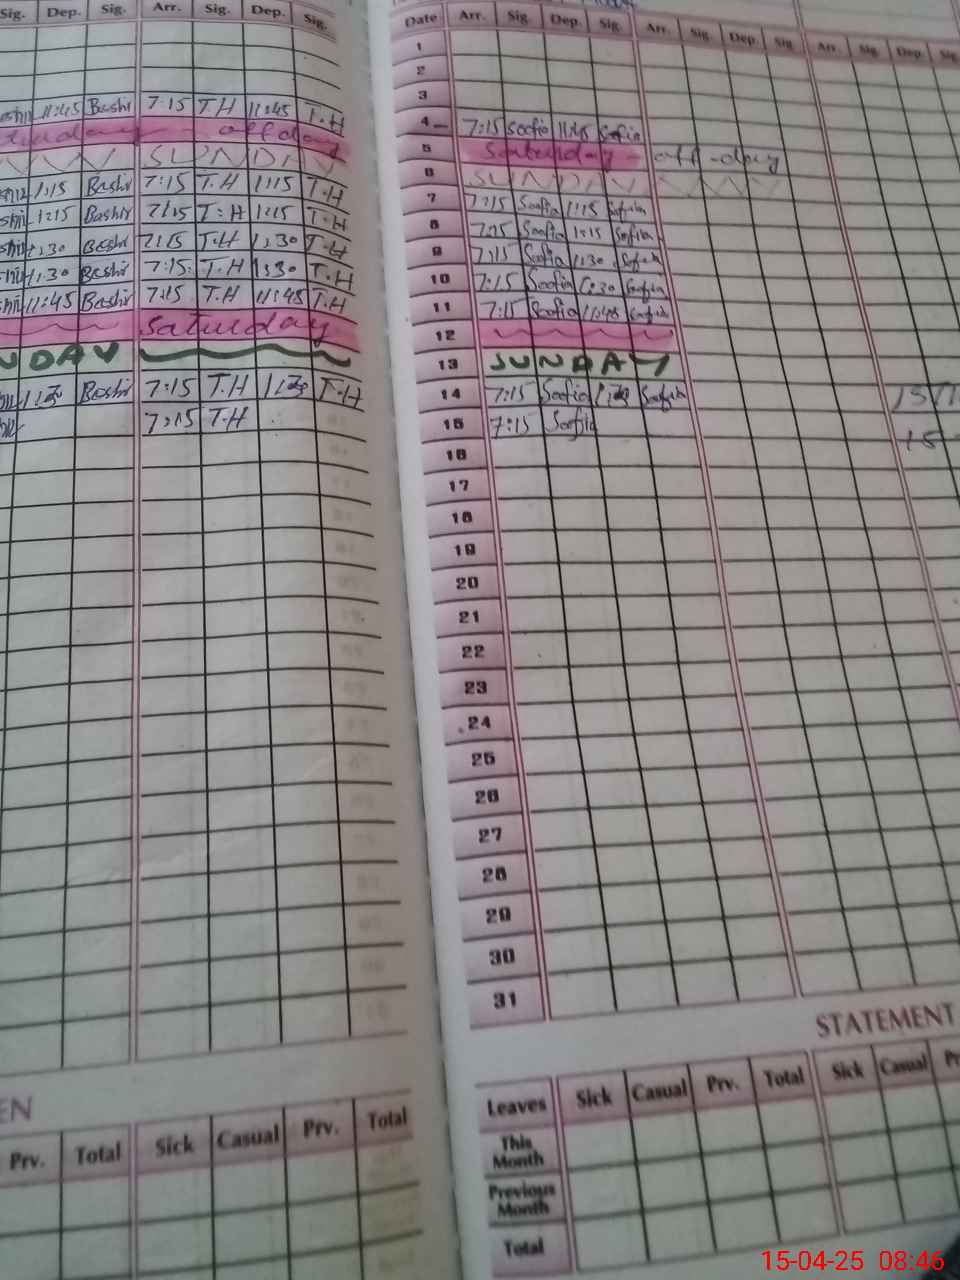 Sig. Dep. Sig. Arr. Sig. Dep. Sig.
11:45 Bashir 7:15 T.H 11:45 T.H
off day
SUNDAY
1:15 Bashir 7:15 T.H 1:15 T.H
1:15 Bashir 7:15 T.H 1:15 T.H
1:30 Bashir 7:15 T.H 1:30 T.H
1:30 Bashir 7:15 T.H 1:30 T.H
11:45 Bashir 7:15 T.H 11:45 T.H
Saturday
NDAY
Bashir 7:15 T.H T.H
7:15 T.H
EN
Prv. Total Sick Casual Prv. Total
Date Arr. Sig. Dep. Sig. Arr. Sig. Dep. Sig. Arr. Sig. Dep. Sig.
1
2
3
4 7:15 Soofia 11:45 Soofia
5 Saturday - off-day
6 SUNDAY
7 7:15 Soofia 1:15 Soofia
8 7:15 Soofia 1:15 Soofia
9 7:15 Soofia 1:30 Soofia
10 7:15 Soofia 1:30 Soofia
11 7:15 Soofia 11:45 Soofia
12
13 SUNDAY
14 7:15 Soofia Soofia
15 7:15 Soofia
16
17
18
19
20
21
22
23
24
25
26
27
28
29
30
31
STATEMENT
Leaves Sick Casual Prv. Total Sick Casual
This Month
Previous Month
Total
15-04-25 08:46